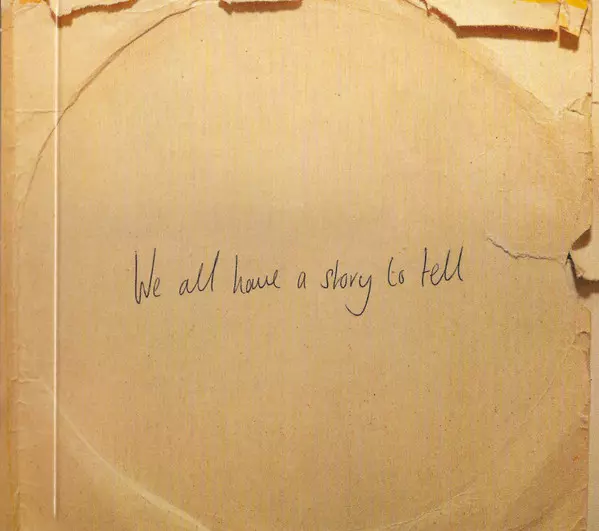 We all have a story to tell